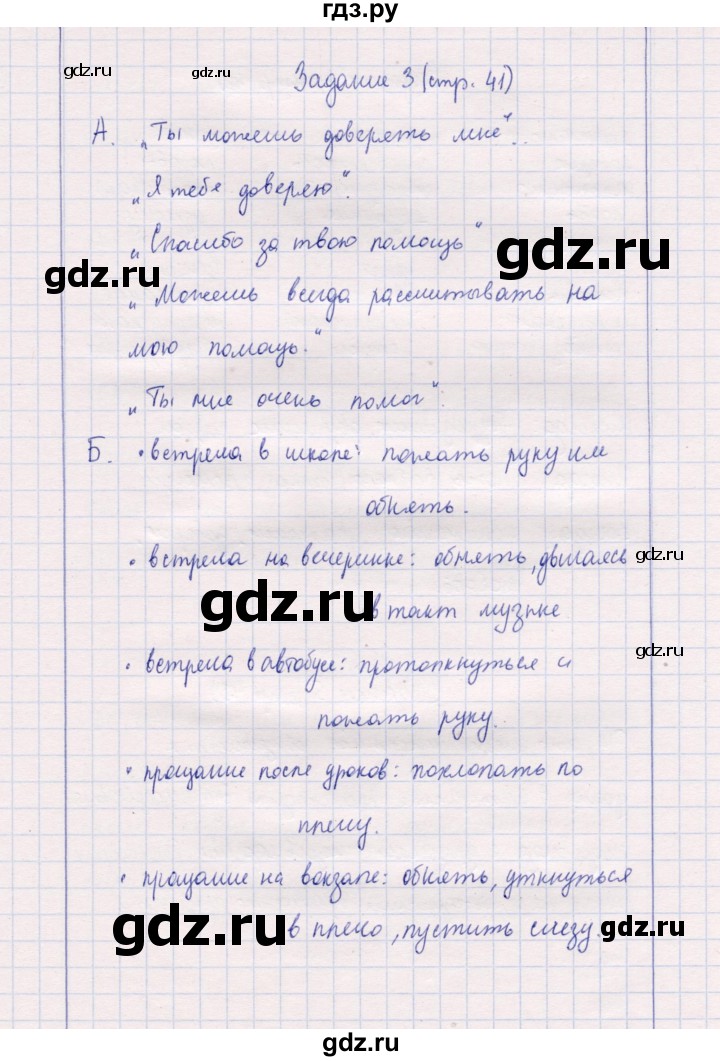 гдз.ру
gdz.ru gdz.ru Задание 3 (стр. 41)
А. „Ты можешь доверять мне“.
„Я тебе доверяю“.
„Спасибо за твою помощь“ gdz.ru
gdz.ru
„Можешь всегда рассчитывать на
мою помощь.“
„Ты мне очень помог“.
Б. • встреча в школе: пожать руку или
обнять.
• встреча на вечеринке: обнять, двигаясь gdz.ru
gdz.ru в такт музыке
• встреча в автобусе: протолкнуться и gdz.ru
пожать руку.
• прощание после уроков: похлопать по
плечу.
• прощание на вокзале: обнять, уткнуться
gdz.ru в плечо, пустить слезу. gdz.ru
gdz.ru